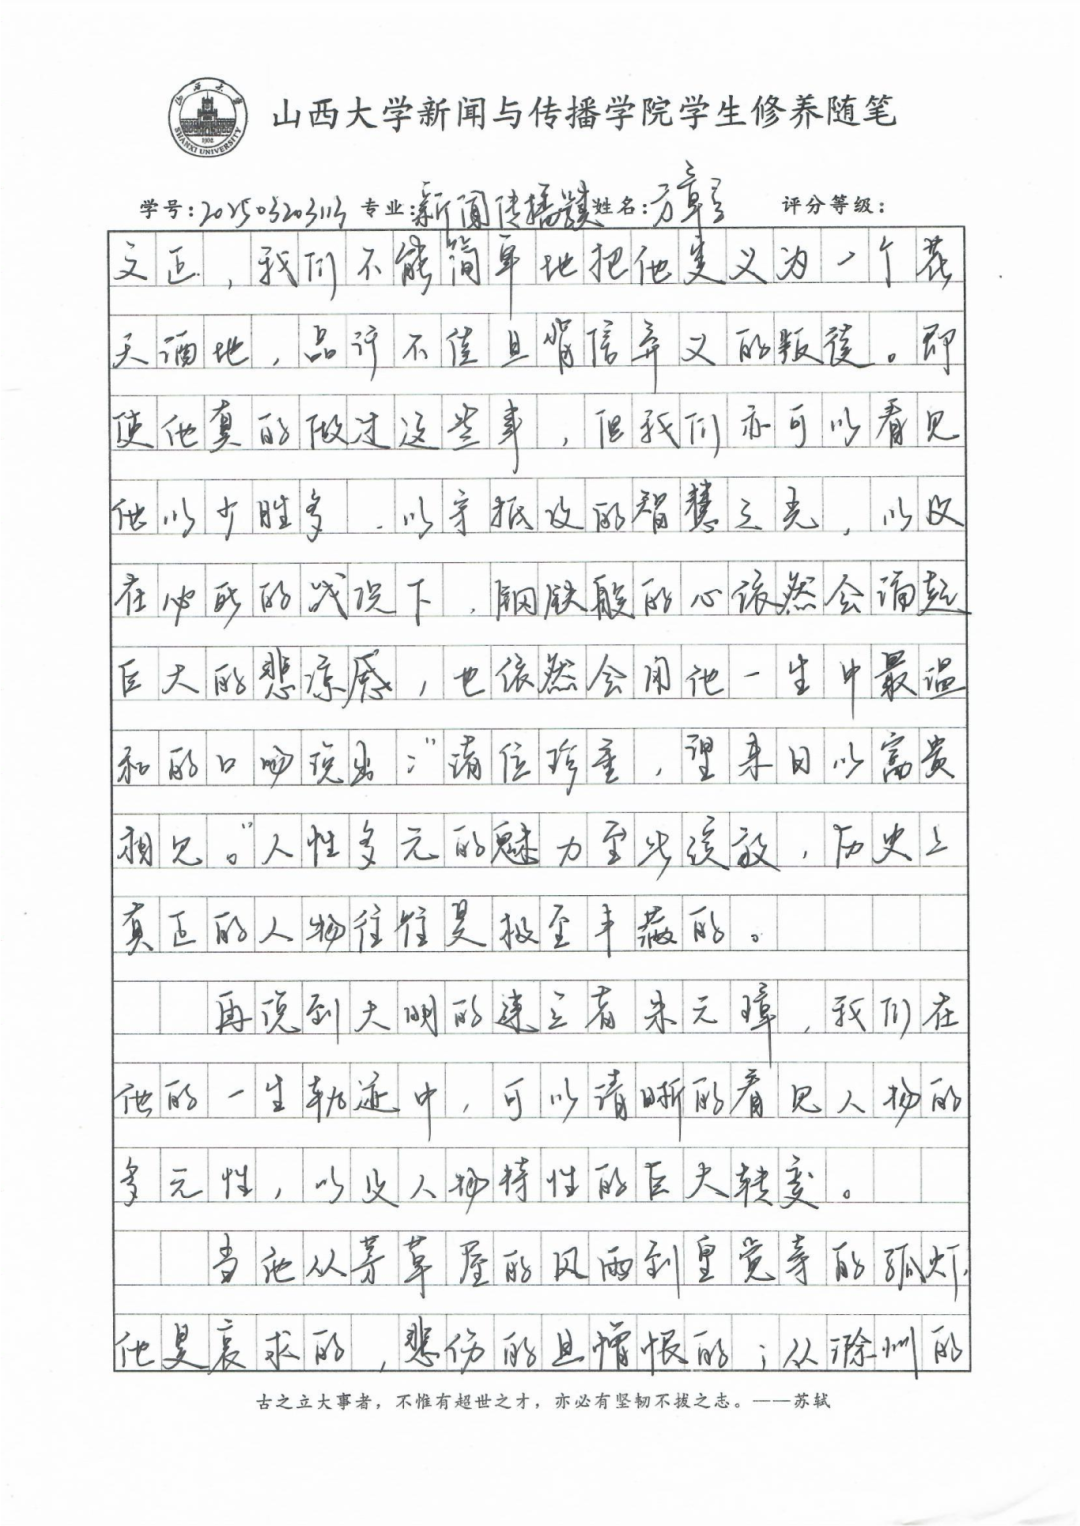 山西大学
SHANXI UNIVERSITY
1902
山西大学新闻与传播学院学生修养随笔
学号: 专业:新闻传播 姓名: 评分等级:
文正，我们不能简单地把他定义为一个花
天酒地，品许不佳且背信弃义的叛徒。即
使他真的做过这些事，但我们亦可以看见
他以少胜多、以守抵攻的智慧之光，以及
在必死的战况下，钢铁般的心依然会涌起
巨大的悲凉感，也依然会用他一生中最温
和的口吻说出：“请位珍重，望来日以富贵
相见。”人性多元的魅力至此绽放，历史上
真正的人物往往是极至丰 的。
再说到大明的建立者朱元璋，我们在
他的一生轨迹中，可以清晰的看见人物的
多元性，以及人物特性的巨大转变。
当他从茅草屋的风雨到皇觉寺的孤灯，
他是哀求的，悲伤的且憎恨的；从滁州的
古之立大事者，不惟有超世之才，亦必有坚韧不拔之志。——苏轼